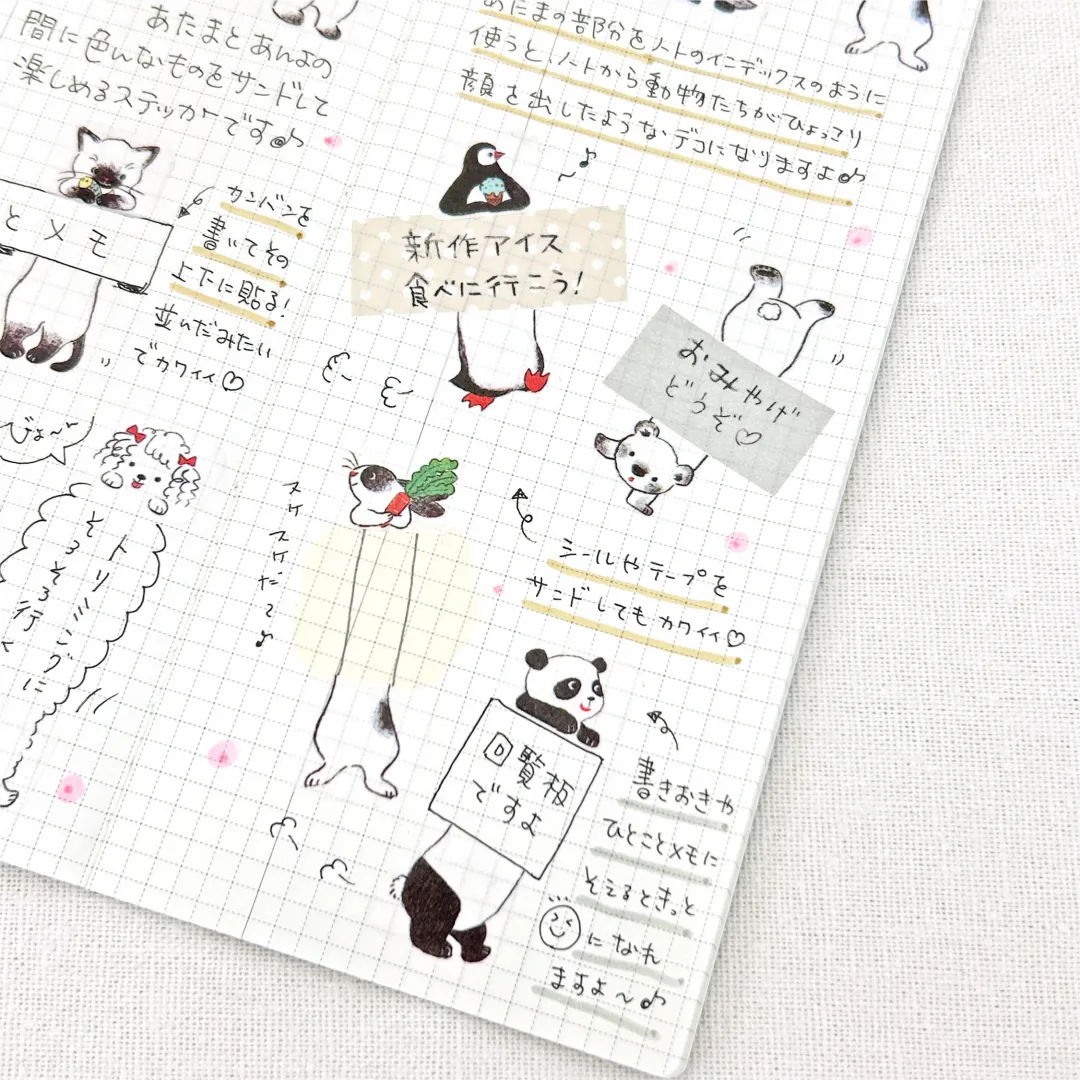 あたまとあんよの
間に色んなものをサンドして
楽しめるステッカーです♪
あたまの部分をノートのインデックスのように
使うと、ノートから動物たちがひょっこり
顔を出したようなデコになりますよ♪
とメモ
カンバンを
書いてその
上下に貼る!
並んだみたい
でカワイイ♡
新作アイス
食べに行こう!
おみやげ
どうぞ♡
びよ〜ん
トリミングに
そろそろ行く
スケスケだ〜♪
シールやテープを
サンドしてもカワイイ♡
回覧板
ですよ
書きおきや
ひとことメモに
そえるときっと
になれ
ますよ〜♪